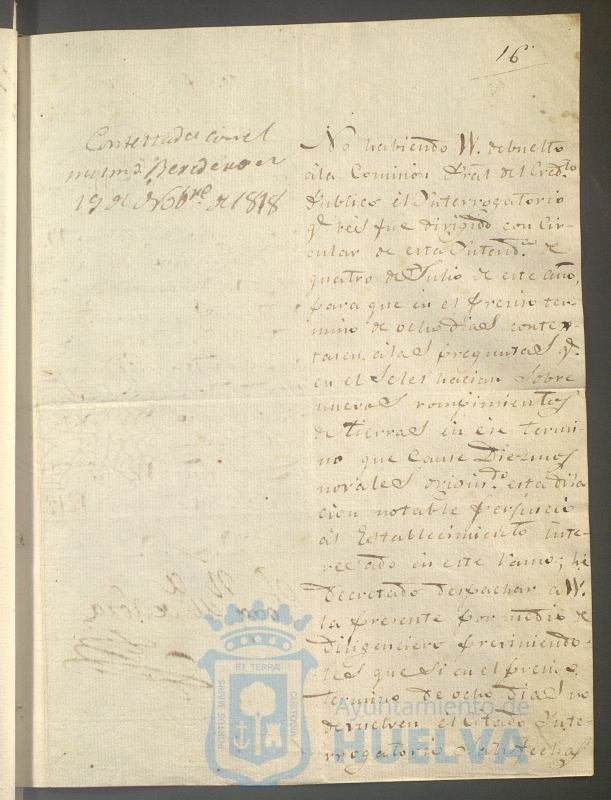 16
Contestada con el
mism.o Beredero en
19 de Nobre. de 1818
No habiendo W. debuelto
á la Comision Pral del Cred.to
Publico el Ynterrogatorio
q.e les fue dirigido con Cir-
cular de esta Yntend.a de
quatro de Julio de este año,
para que en el preciso ter-
mino de ocho dias contex-
tasen á las preguntas q.e
en el se les hacian sobre
nuevos rompimientos
de tierras en ese termi-
no que cause Diezmos
novales origin.do esta dila
cion notable perjuicio
al Establecimiento inte-
resado en este ramo; he
Decretado despachar a W.
la presente por medio de
Diligenciero previniendo-
les que si en el preciso
termino de ocho dias no
devuelven el citado Ynte-
rrogatorio
ET TERRÆ
PORTUS MARIS
CUSTODIA
Ayuntamiento de
HUELVA